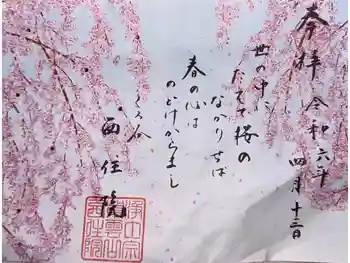 奉拝 令和六年 四月十三日
世の中に
たえて桜の
なかりせば
春の心は
のどけからまし
くろ谷
西住院